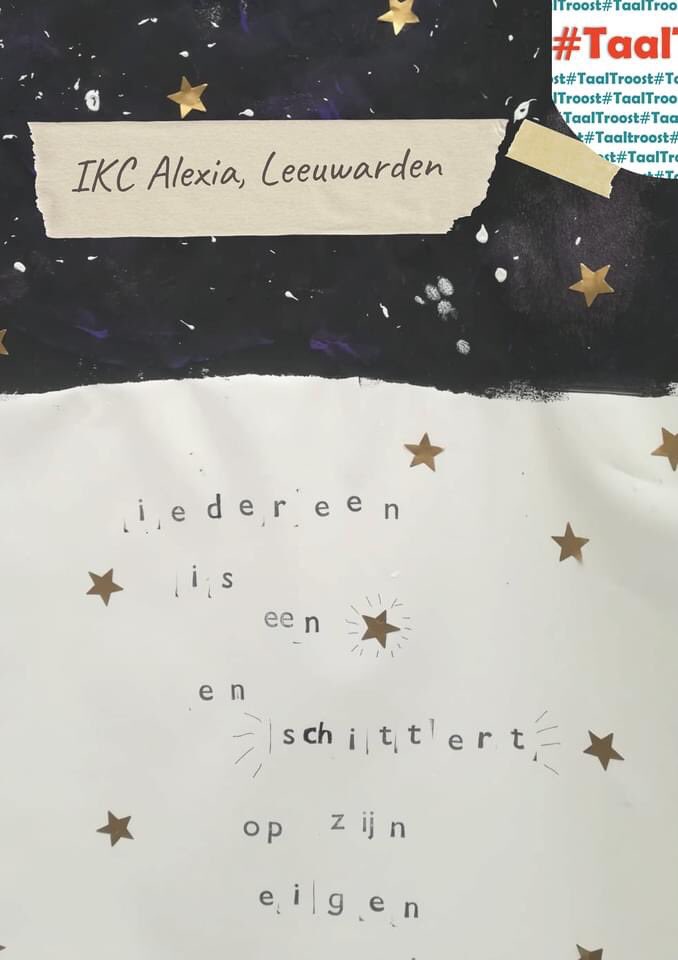 lTroost#TaalTroo
#TaalT
st#TaalTroost#Ta
lTroost#TaalTroo
TaalTroost#Taa
#Taaltroost#
st#TaalTr
IKC Alexia, Leeuwarden
iedereen
is
een
en
schittert
op zijn
eigen